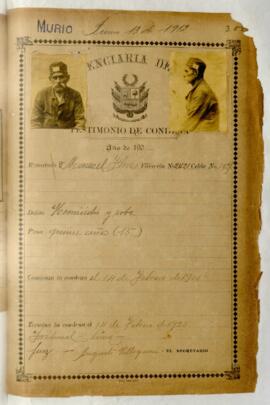 MURIO Junio 13 de 1912
ENCIARIA DE
TESTIMONIO DE CONDENA
Año de 190
Rematado Nº Manuel Filiación Nº 2421 Celda Nº
Delito Homicidio y robo
Pena quince años (15)
Comienza la condena el 14 de Febrero de
Termina la condena el 14 de Febro de 1921
Tribunal Lima
Juez EL SECRETARIO